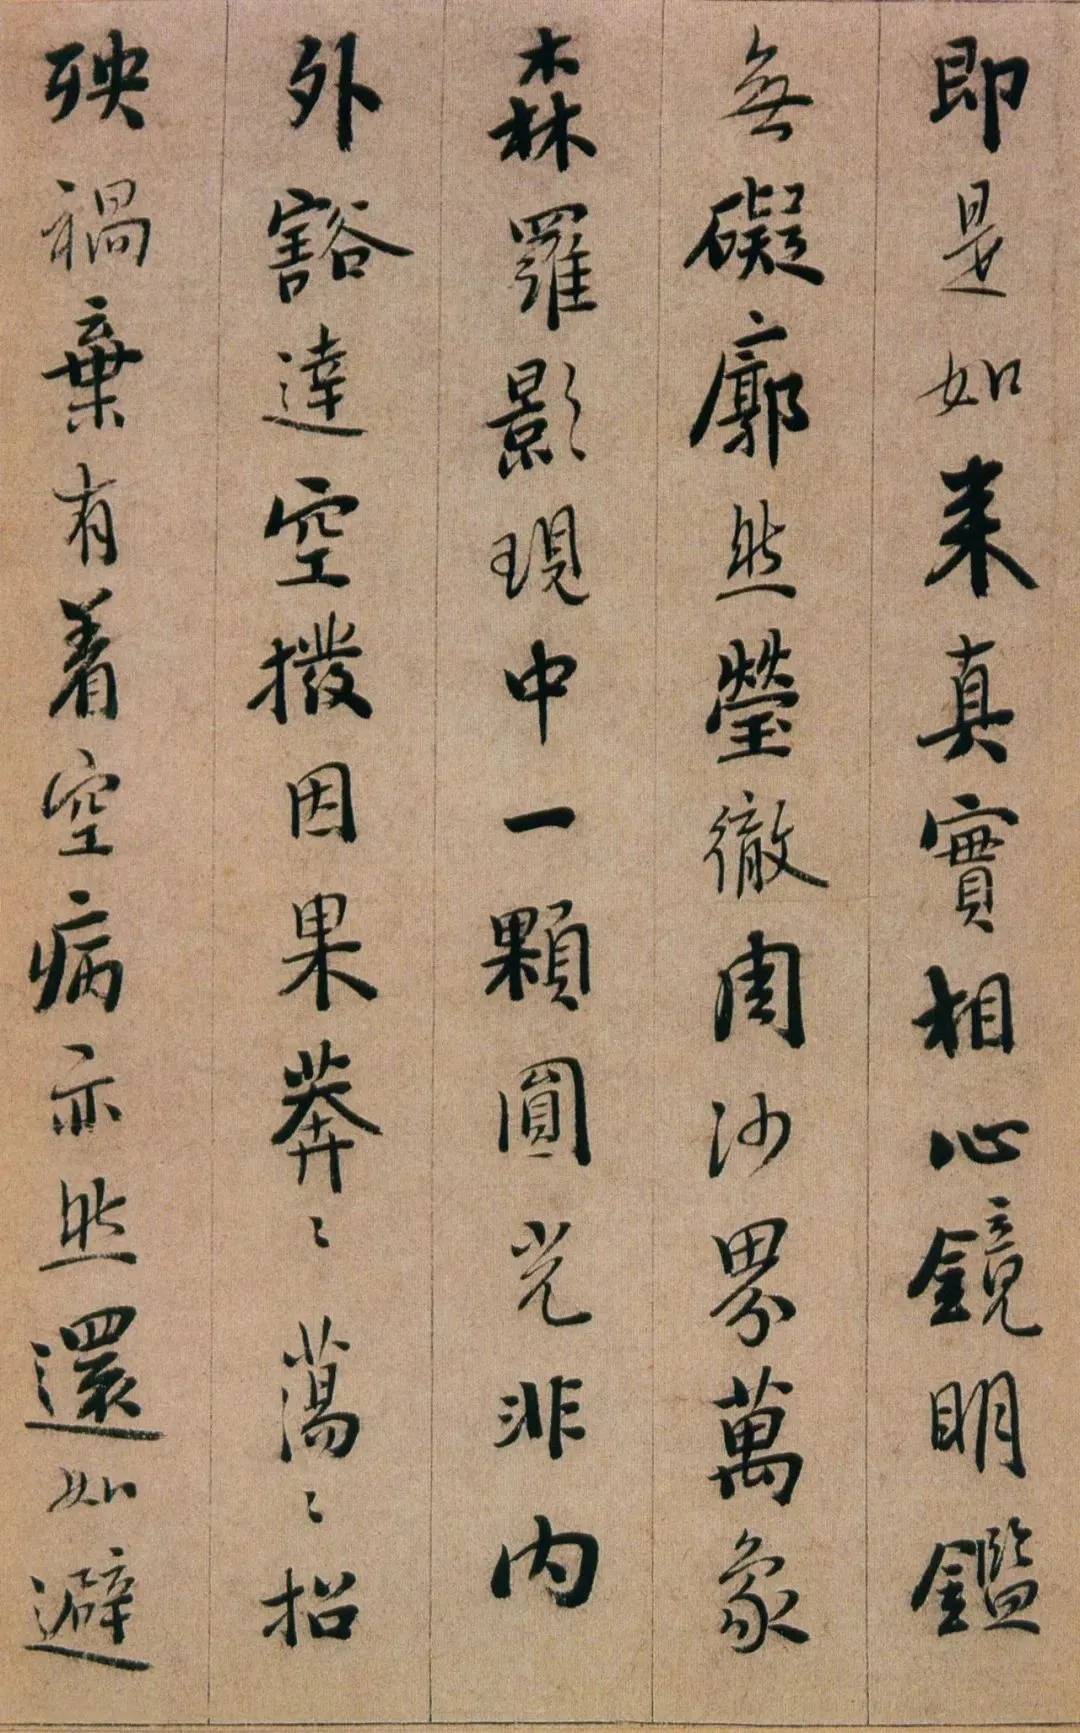 即是如来真實相心鏡明鑑
無礙廓然瑩徹周沙界萬象
森羅影現中一顆圓光非内
外豁達空撥因果莽〻蕩〻招
殃禍棄有着空病亦然還如避